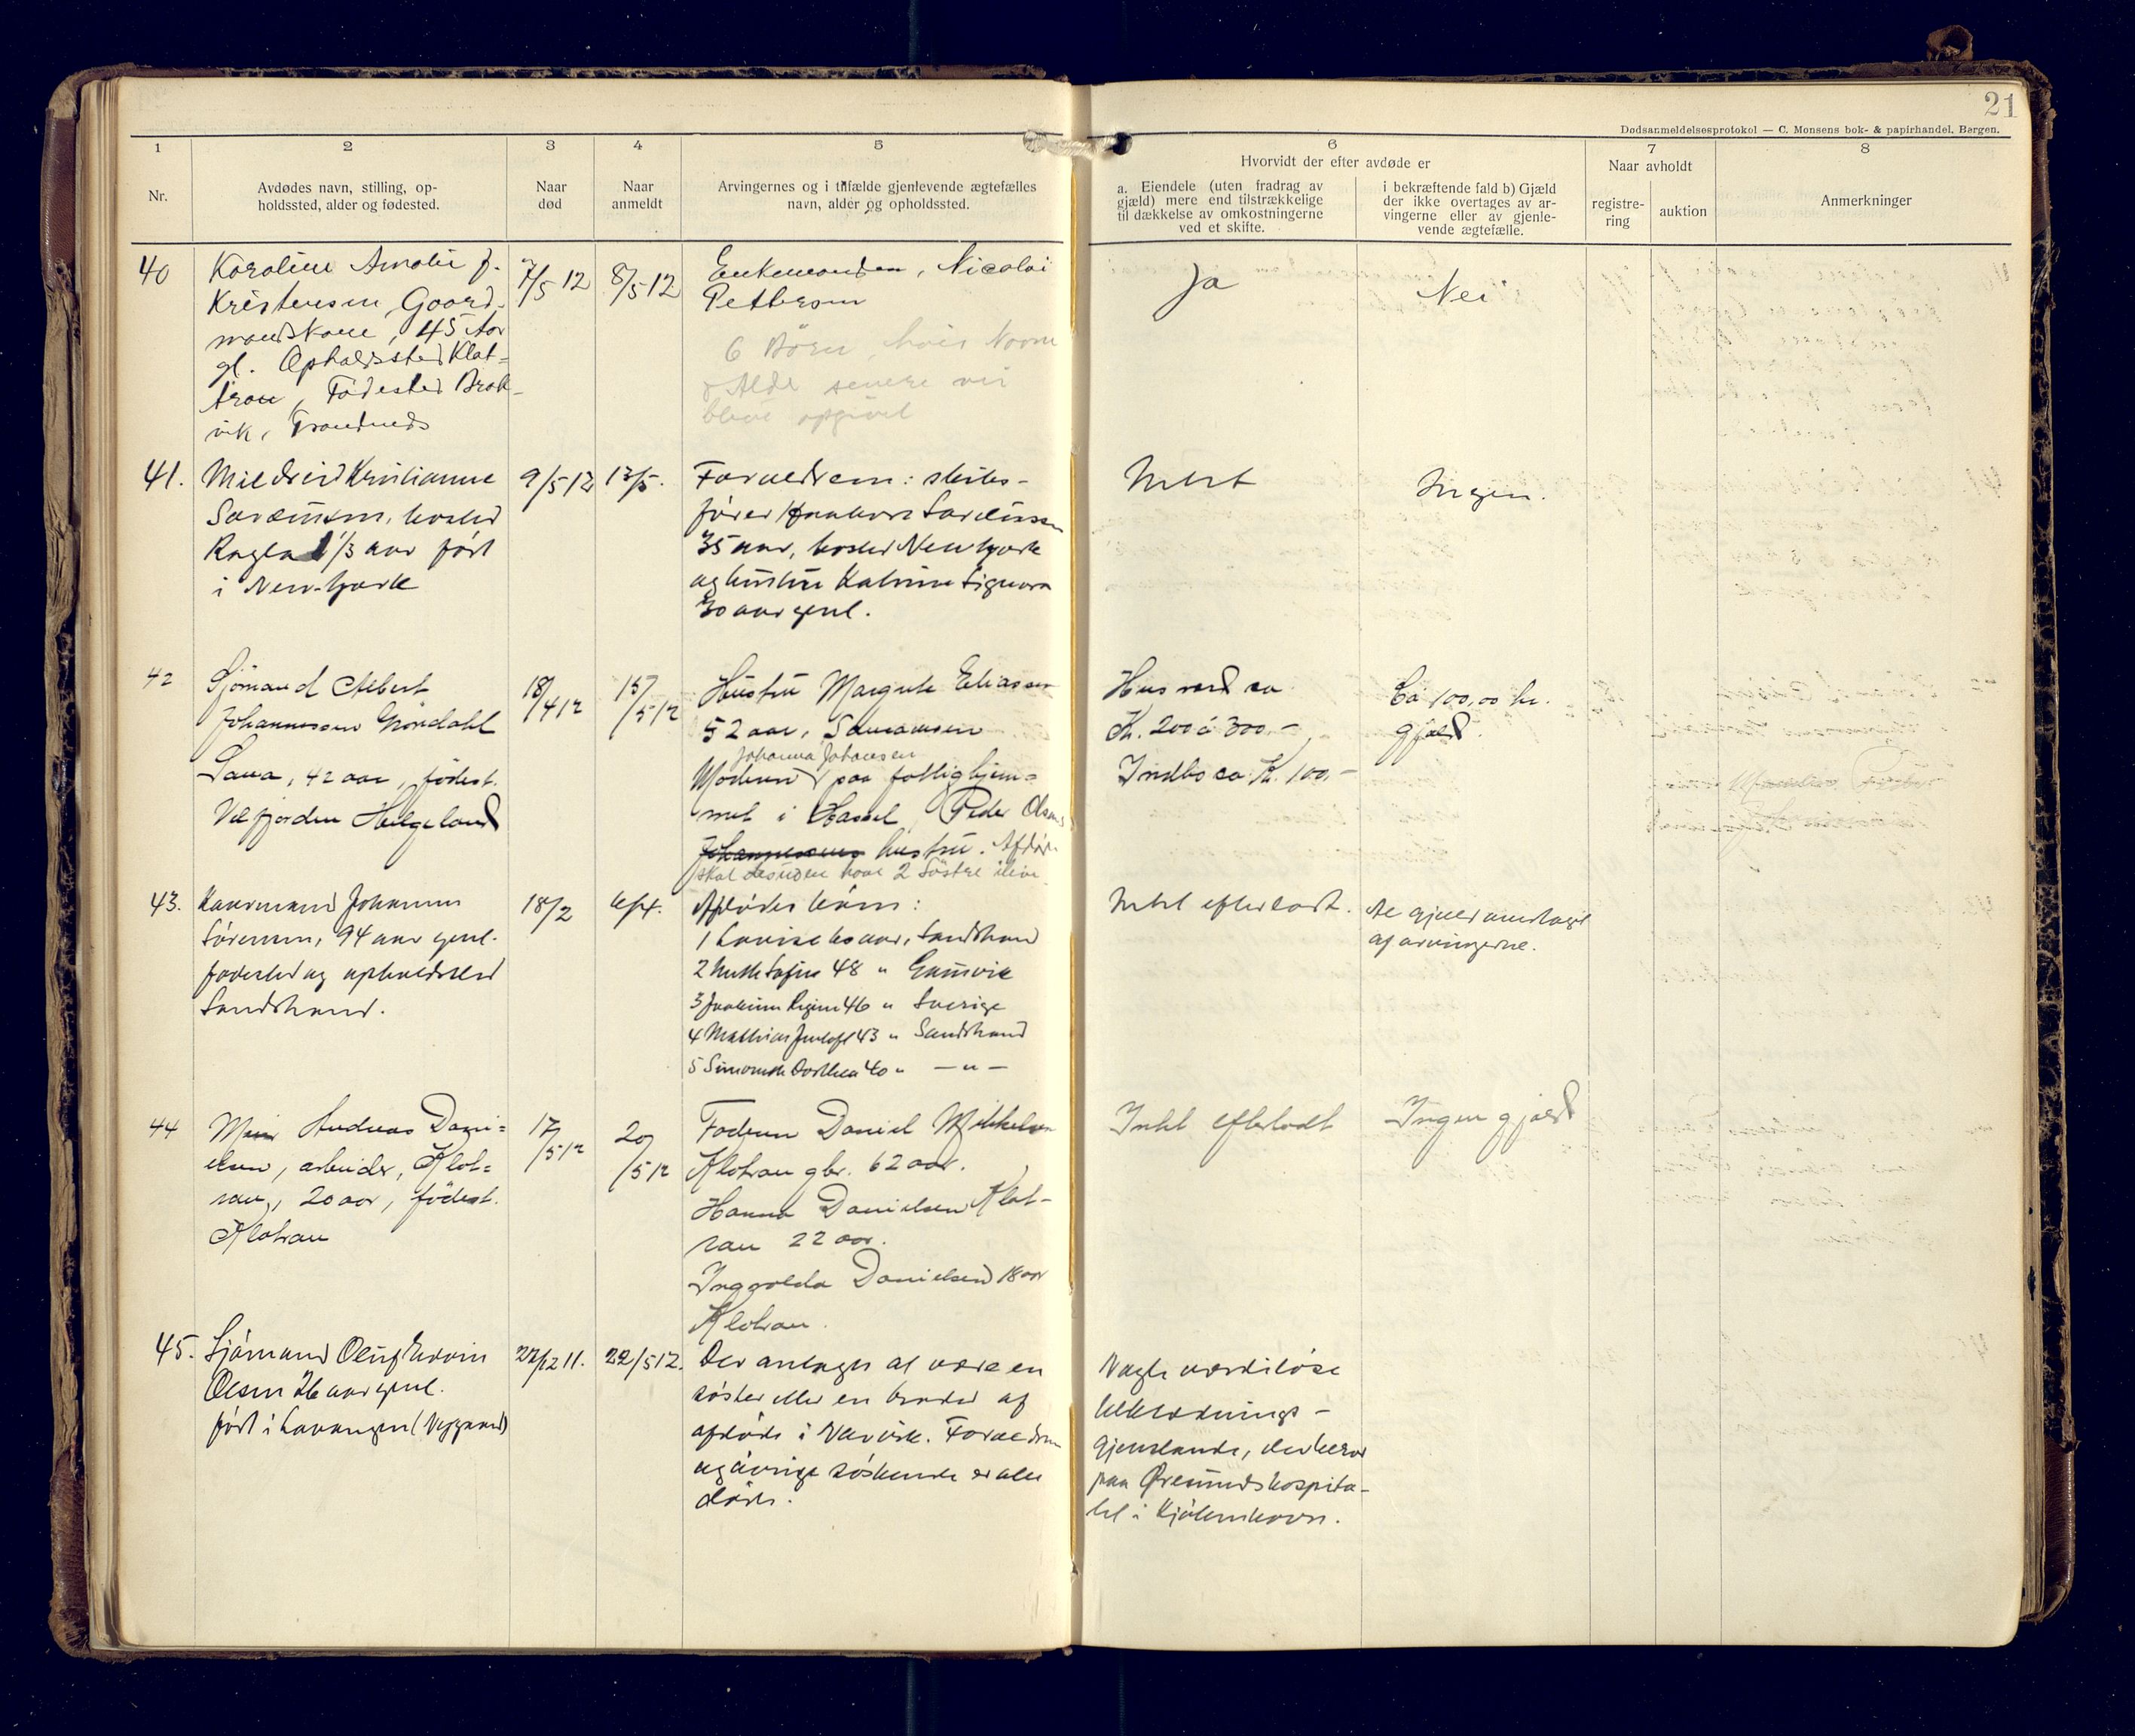 21
Dødsanmeldelsesprotokol — C. Monsens bok- & papirhandel, Bergen.
1
Nr.
2
Avdødes navn, stilling, op-
holdssted, alder og fødested.
3
Naar
død
4
Naar
anmeldt
5
Arvingernes og i tilfælde gjenlevende ægtefælles
navn, alder og opholdssted.
6
Hvorvidt der efter avdøde er
a. Eiendele (uten fradrag av
gjæld) mere end tilstrækkelige
til dækkelse av omkostningerne
ved et skifte.
i bekræftende fald b) Gjæld
der ikke overtages av ar-
vingerne eller av gjenle-
vende ægtefælle.
7
Naar avholdt
registre-
ring
auktion
8
Anmerkninger
40
Karoline Amalie f.
Kristensen, Gaard-
mandskone, 45 Aar
gl. Opholdssted Klot-
tran, Fødested Brok-
vik, Trondenes
7/5 12
8/5 12
Enkemanden, Nicolai
Pettersen
6 Börn, hvis Navne
& Alder senere vil
blive opgivet
Ja
Nei
41.
Mildrid Kristianne
Sørensen, bosted
Rogla 1 1/3 aar født
i New-York
9/5 12
13/5.
Forældrene: skibs-
fører Haakon Sørenssen
35 aar, bosted New York
og hustru Katrine Signora
30 aar gml.
Intet
Ingen.
42
Sjömand Albert
Johannessen Nordahl
Sana, 42 aar, födest.
Velfjorden Helgeland
18/4 12
15/5 12
Hustru Margrete Eliassen
52 aar,
Johanna Johansen
Moderen paa fattighjem-
met i Hassel, Peder Olsens
Johannessens hustru. Afdöde
skal desuden have 2 Söstre ilive
Hus verd ca
Kr. 200 á 300.-
Indbo ca Kr. 100,-
Ca 100,00 kr.
gjæld.
43.
Kaarmand Johannes
Sörensen, 94 aar gml.
fødested og opholdssted
Sandstrand.
18/2
6/4.
Afdødes börn:
1 Lovise 60 aar, Sandstrand
2 Sofie 48 " Gamvik
3 Regine 46 " Sverige
4 Mathias 43 " Sandstrand
5 Dorthea 40 " — " —
Intet efterladt.
Al gjæld overtaget
af arvingerne.
44
Andreas Dani-
elsen, arbeider, Klot-
ran, 20 aar, födest.
Klotran
17/5 12
20/5 12
Faderen Daniel Mikkelsen
Klotran gbr. 62 aar.
Hanna Danielsen Klot-
ran 22 aar.
Inggolda Danielsen 18 aar
Klotran.
Intet efterladt
Ingen gjæld
45.
Sjömand Oluf Edvin
Olsen 26 aar gml.
født i Lavangen (Nygaard)
22/12 11.
22/5 12.
Der antages at være en
söster eller en broder af
afdøde i Narvik. Forældrene
og övrige söskende er alle
døde.
Nogle værdiløse
beklædnings-
gjenstande, der beror
paa Øresundshospita-
let i Kjöbenhavn.